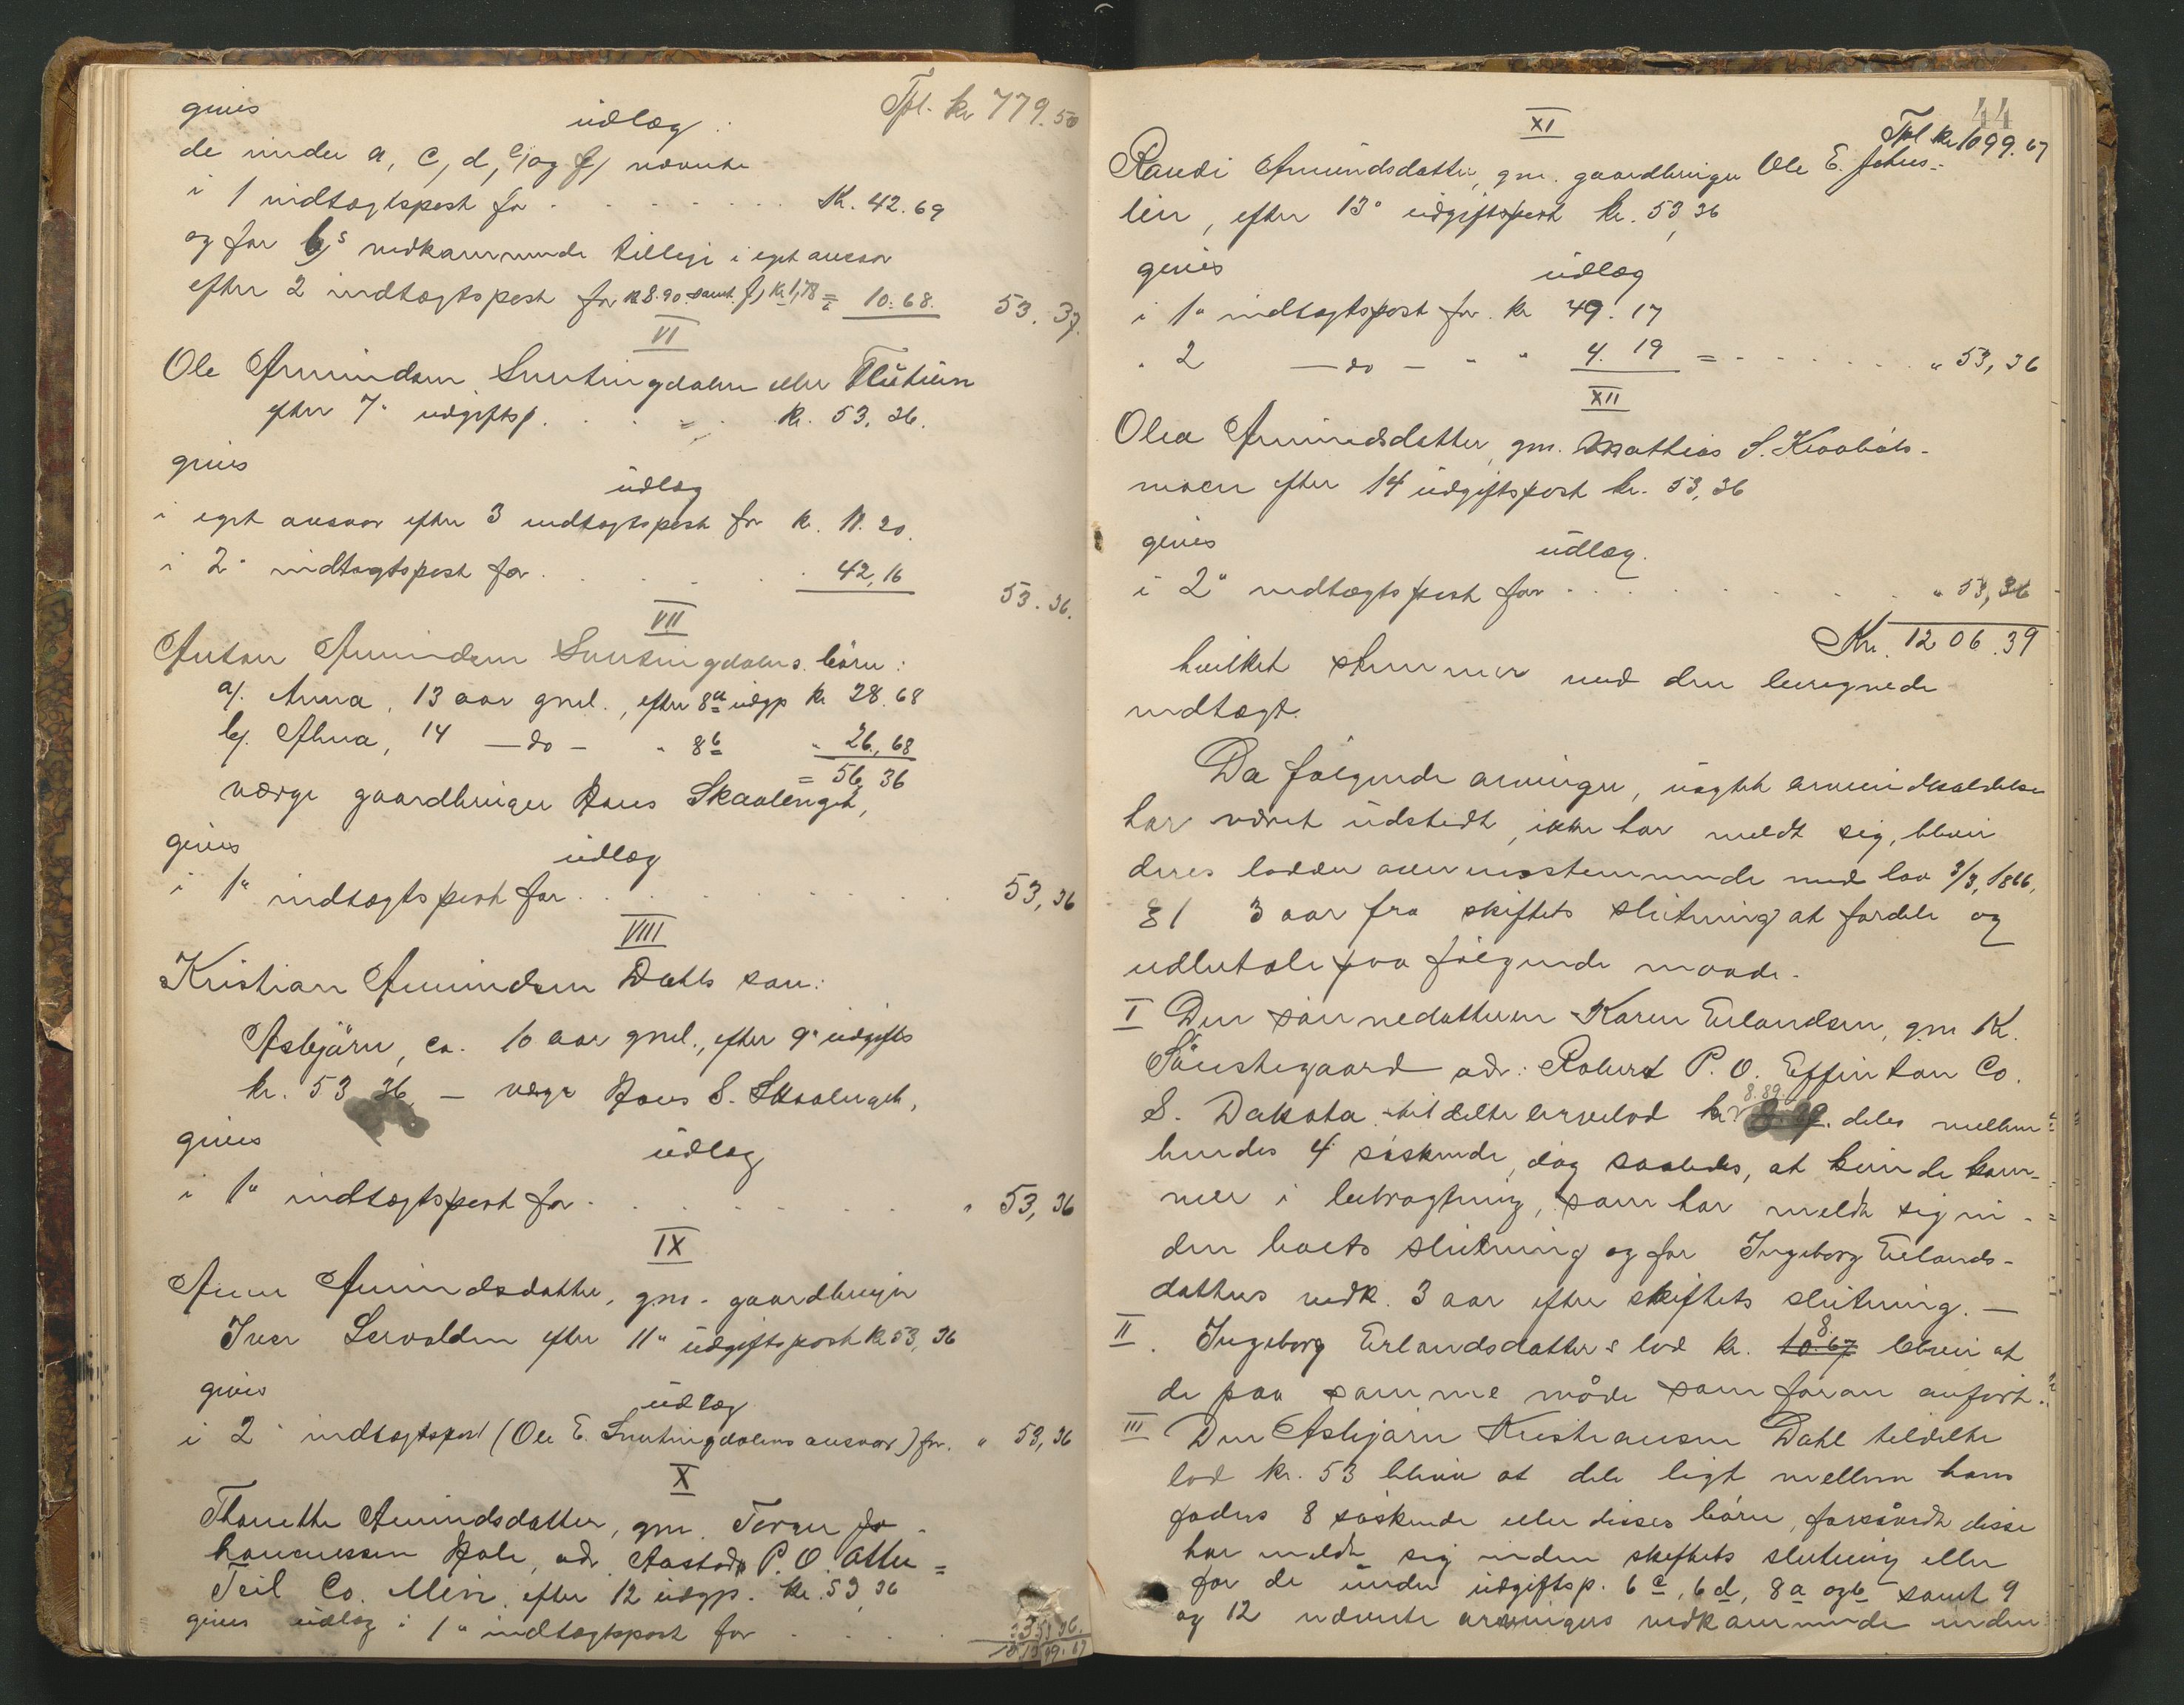 Tpl. kr 779.50
gives udlæg:
de under a, c, d, e, og f, nævnte
i 1 indtægtspost for . . . . . . Kr. 42.69
og for b,s vedkommende tillige i eget ansvar
efter 2 indtægtspost for kr 8.90 samt f, kr 1,78 = 10.68. 53.37.
VI
Ole Amundsen eller
efter 7. udgiftsp. . . = . kr. 53,36.
gives udlæg
i eget ansvar efter 3 indtægtspost for kr. 11.20.
i 2" indtægtspost for . . . . . 42,16 53.36.
VII
Anton Amundsen børn:
a). Anna, 13 aar gml., efter 8a udgp kr 28.68
b). Alma, 14 — do — " 8b " 26,68
= 56,36
værge gaardbruger Hans Skaalenget,
gives udlæg
i 1" indtægtspost for . . . . . . . 53,36
VIII
Kristian Amundsen Dahls søn:
Asbjørn, ca. 10 aar gml., efter 9" udgifts
kr. 53 36, — værge Hans S. Skaalenget,
gives udlæg
i 1" indtægtspost for . . . . . . " 53,36
IX
Anne Amundsdatter, gm. gaardbruger
Iver efter 11" udgiftspost kr 53,36
gives udlæg
i 2" indtægtspost (Ole E. ansvar) for. " 53,36
X
Thonette Amundsdatter, gm. Torger Jo-
hannessen Hole, adr. Aastad P. O. Otter=
Teil Co. Min. efter 12 udgp. kr. 53,36
gives udlæg i 1" indtægtspost for . . . . 53,36.
1099.67
44
XI
Tpl kr 1099.67
Randi Amundsdatter, gm. gaardbruger Ole E.
lien, efter 13" udgiftspost kr. 53,36
gives udlæg
i 1" indtægtspost for. kr 49.17
" 2 — do — " " 4.19 = . . . . . " 53,36
XII
Olea Amundsdatter, gm. Mathias S.
moen efter 14 udgiftspost kr. 53,36
gives udlæg.
i 2" indtægtspost for . . . . . . " 53,36
Kr. 1206.39
hvilket stemmer med den beregnede
indtægt.
Da følgende arvinger, uagtet arveindkaldelse
har været udstedt, ikke har meldt sig, bliver
deres lodder overensstemmende med lov 3/3, 1866,
§ 1 3 aar fra skiftets slutning at fordele og
udbetale paa følgende maade.
I Den sønnedatteren Karen Erlandsen, gm K.
Sønstegaard adr: Robert P. O. Effinton Co.
S. Dakota tildelte arvelod kr 8.89. deles mellem
hendes 4 søskende, dog saaledes, at kun de kom-
mer i betragtning, som har meldt sig in-
den boets slutning og for Ingeborg Erlands-
datters vedk. 3 aar efter skiftets slutning. —
II. Ingeborg Erlandsdatters lod kr. 10.67 bliver at
de paa samme måde som foran anført.
III Den Asbjørn Kristiansen Dahl tildelte
lod kr. 53 bliver at dele ligt mellem hans
faders 8 søskende eller disses børn, forsåvidt disse
har meldt sig inden skiftets slutning eller
for de under udgiftsp. 6c, 6d, 8a og b samt 9
og 12 nævnte arvingers vedkommende inden